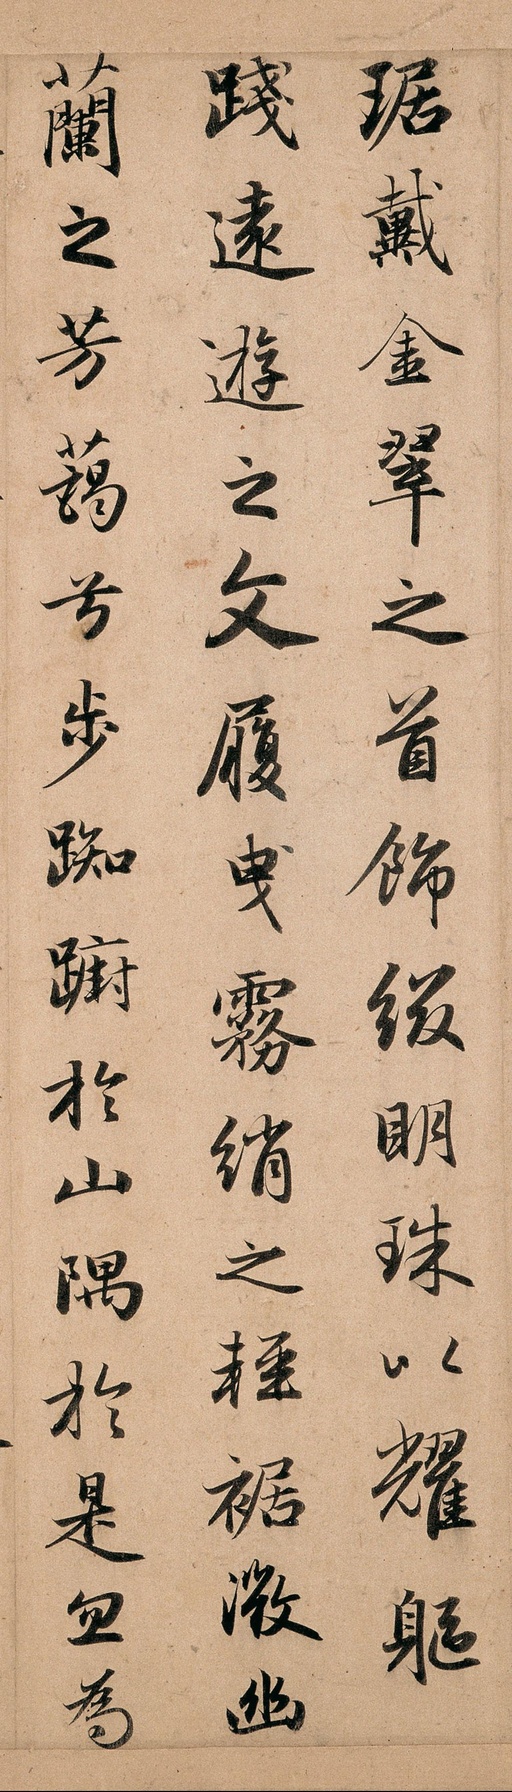 琚戴金翠之首飾綴明珠以耀軀
踐遠遊之文履曳霧綃之輕裾微幽
蘭之芳藹兮步踟躕於山隅於是忽為